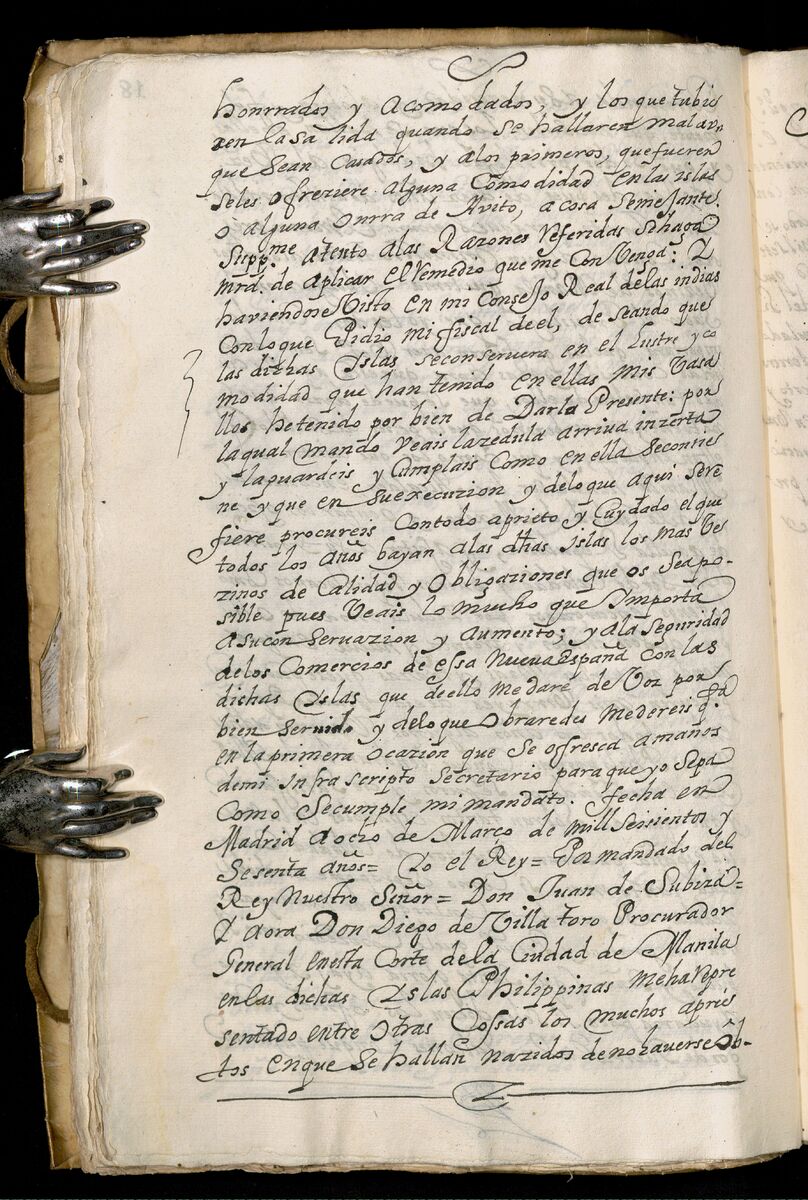 honrrados y acomodados, y los que tubie
ren la salida quando se hallaren
que Sean Casados, y alos primeros, que fueren
seles ofreziere alguna Comodidad en las islas
o alguna onrra de Avito, a cosa Semejante.
Supp.me atento alas Razones Referidas sehaga
mrd. de aplicar el Remedio que me Convenga: Y
haviendose Visto en mi Consejo Real delas indias
Conloque Pidio mi fiscal deel, deseando que
las dichas Yslas seconservera en el Lustre y co
modidad que han tenido en ellas Mis Vasa
llos hetenido por bien de Darla Presente: por
laqual mando Veais lazedula arriva inzerta
y laguardeis y Cumplais Como en ella Seconttie
ne y que en suexecuzion y deloque aqui sere
fiere procureis Contodo aprieto y Cuydado el que
todos los años bayan alas dhas Islas los mas Ve
zinos de Calidad y Obligaziones que os Seapo-
sible pues Veais lo mucho que Ymporta
asucon Servazion y aumento; yala Seguridad
delos Comercios de essa Nueva España Con las
dichas Yslas que deello medare de Voz por
bien Servido y deloque Obraredes Medereis q.ta
en la primera ocazion que Se ofresca a manos
demi Infra scripto Secretario para que yo Sepa
Como Secumple mi mandato. fecha en
Madrid a ocio de Março de mill Seisientos y
Sesenta años= Yo el Rey= Por mandado del
Rey Nuestro Señor= Don Juan de Subiza=
Y aora Don Diego de Villa toro Procurador
General enesta Corte dela Ciudad de Manila
enlas dichas Yslas Philippinas meha Repre
sentado entre Otras Cossas los muchos aprie
tos enque Se hallan nazidos deno haverse Ob-